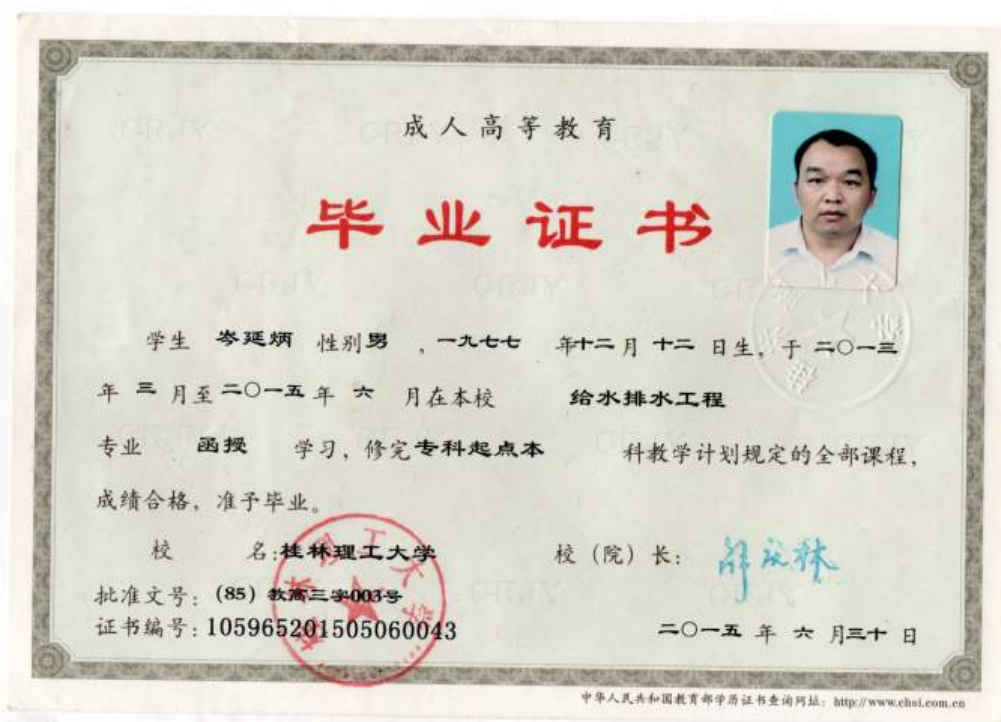 成人高等教育
毕业证书
学生 岑延炳 性别男 ,一九七七 年十二月 十二 日生,于 二〇一三
年 三 月至 二〇一五 年 六 月在本校 给水排水工程
专业 函授 学习,修完专科起点本 科教学计划规定的全部课程,
成绩合格,准予毕业。
校 名:桂林理工大学 校(院)长:
批准文号:(85)教高三字003号
证书编号:105965201505060043 二〇一五 年 六 月三十 日
桂林理工大学
中华人民共和国教育部学历证书查询网址:http://www.chsi.com.cn